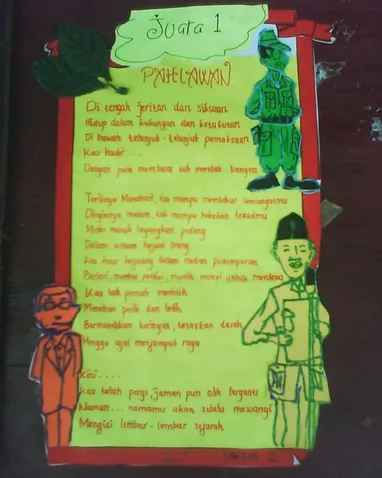 Juara 1
PAHLAWAN
Di tengah jeritan dan siksaan
Hidup dalam kukungan dan ketakutan
Di bawah telunjuk-telunjuk pemaksaan
Kau hadir....
Dengan jiwa membara tak merelai bangsa
Teriknya Matahari, tak mampu membakar semangatmu
Dinginnya malam, tak mampu bekukan tekadmu
Meski musuh layangkan pedang
Dalam kejam perang
Kau terus berjuang dalam medan pertempuran
Berlari, menebus peluru, memilih mati untuk merdeka
Kau tak pernah merintih
Menahan perih dan letih
Bermandikan keringat, teteskan darah
Hingga ajal menjemput raga
Kini....
Kau telah pergi, jaman pun tlah berganti
Namun... namamu akan selalu mewangi
Mengisi lembar-lembar sejarah